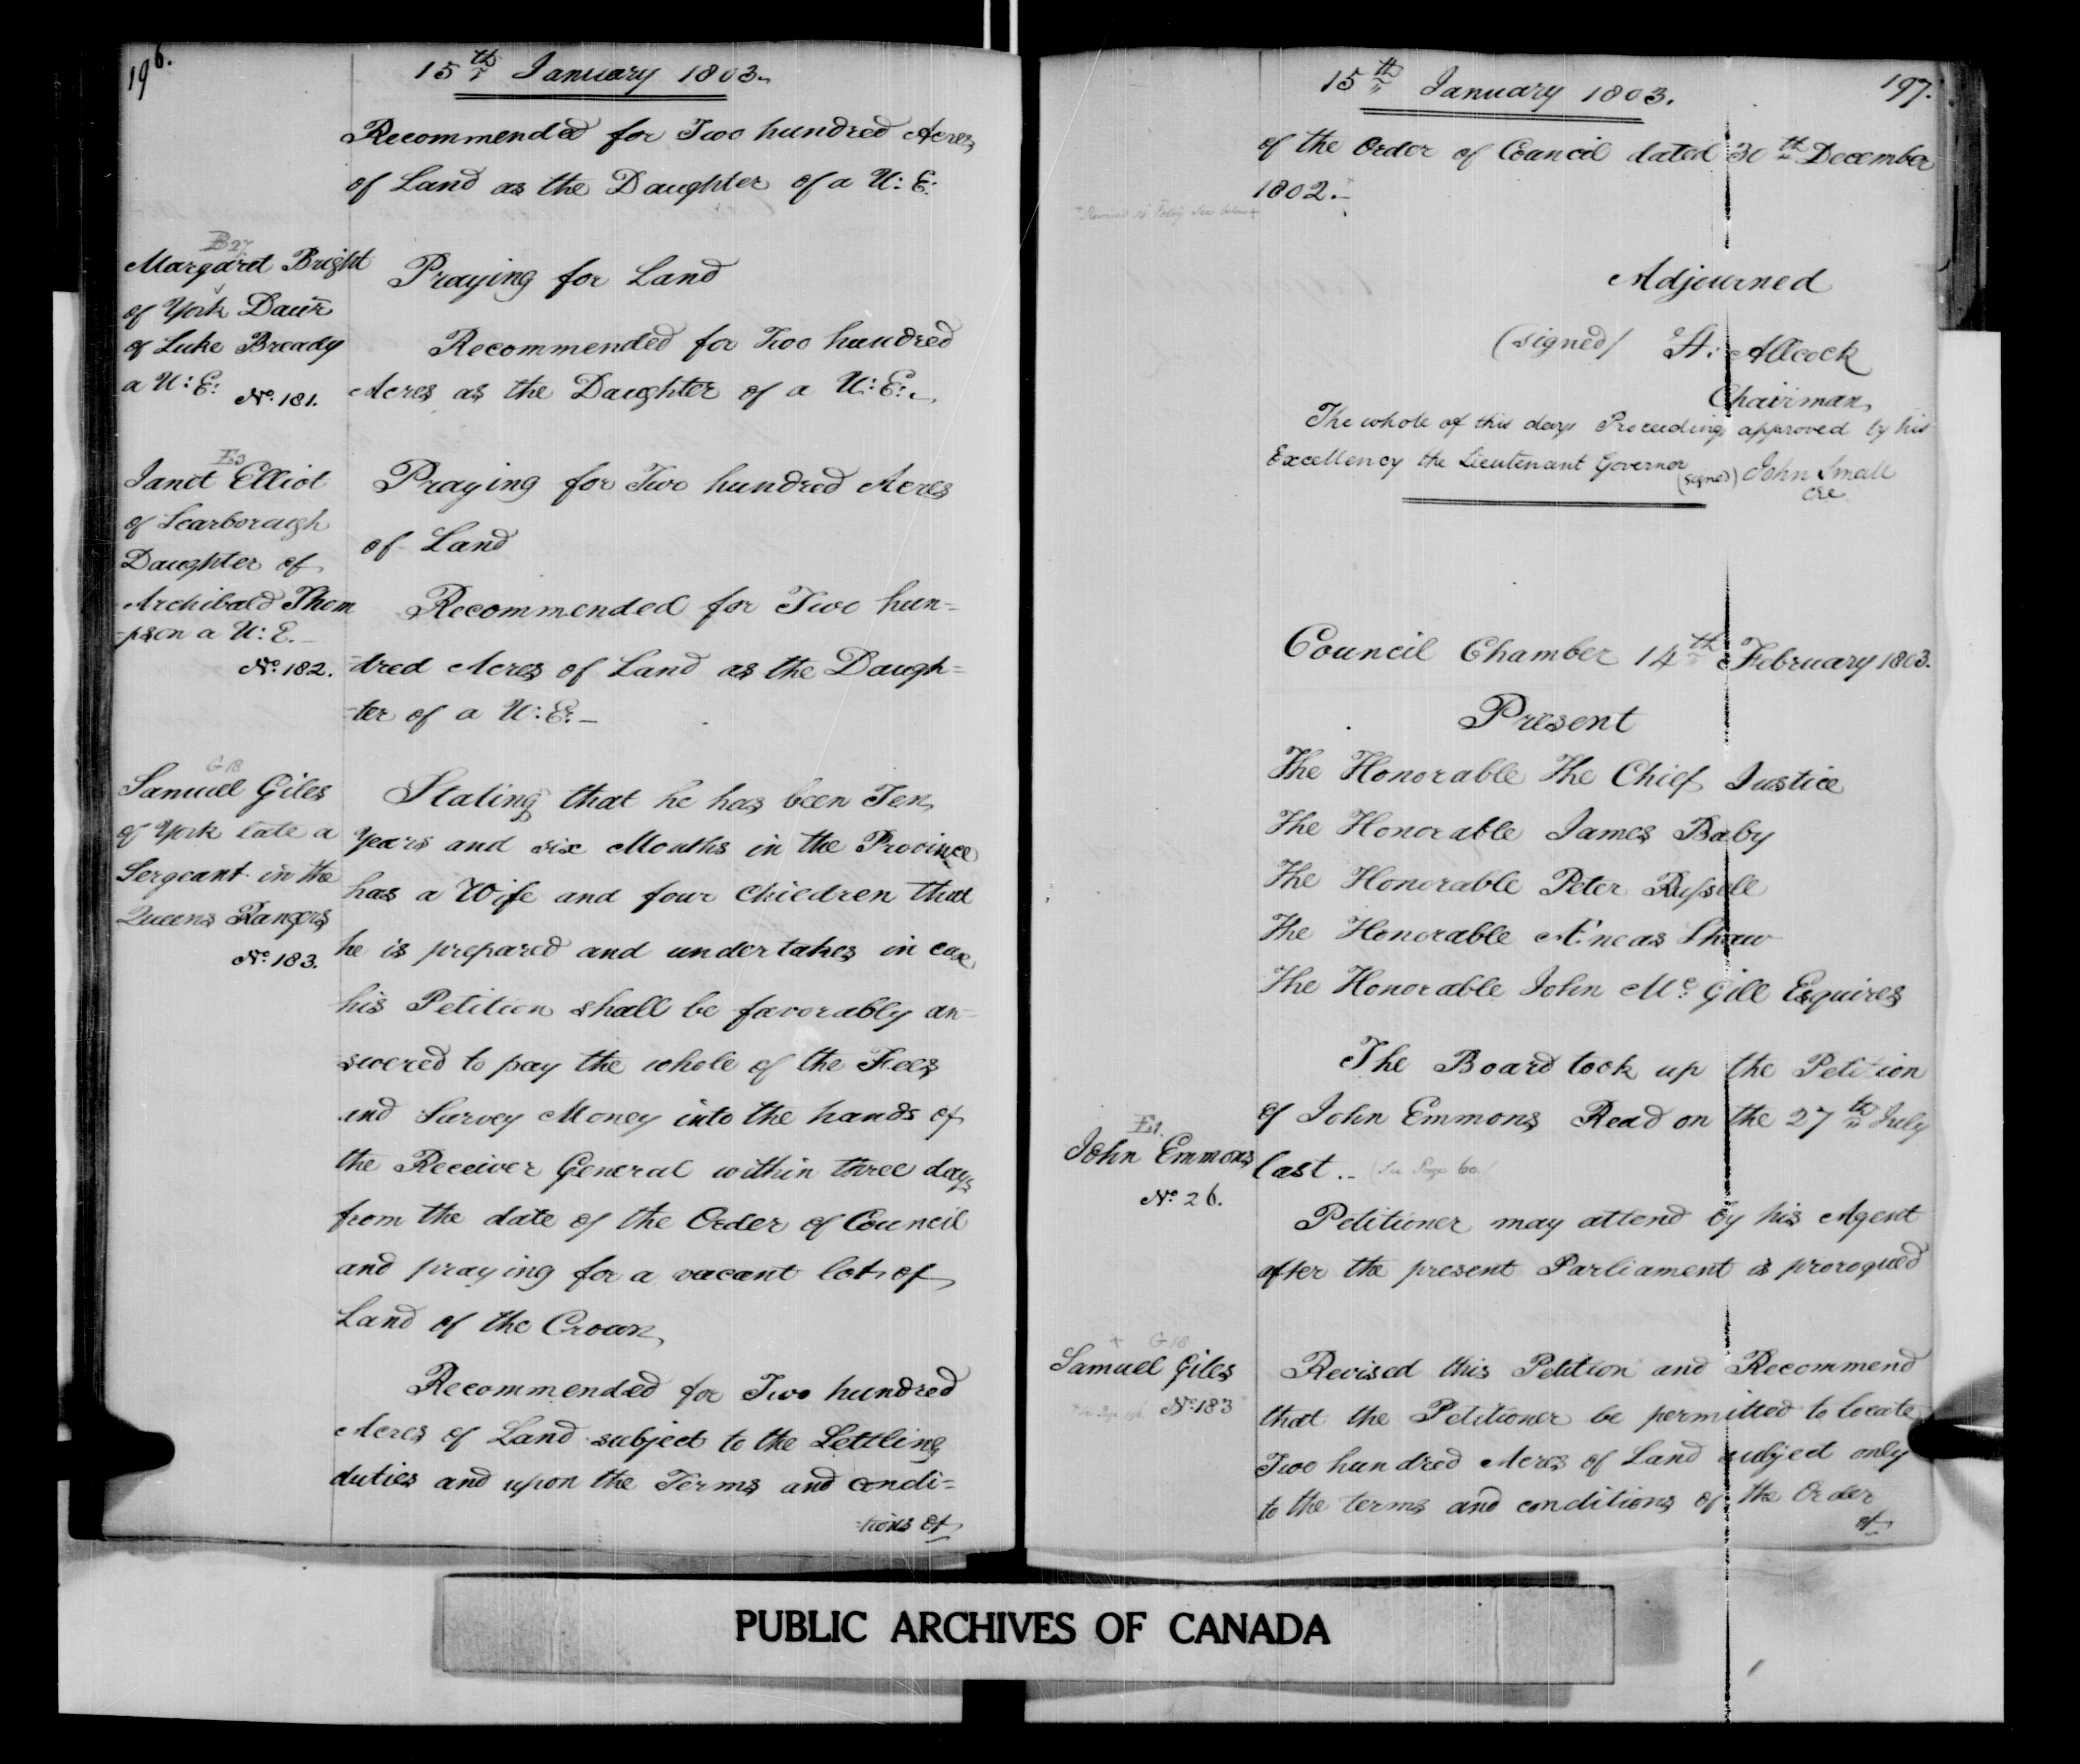 196.
15th January 1803.
Recommended for Two hundred Acres
of Land as the Daughter of a U: E:
B27
Margaret Bright
of York Daur
of Luke Broady
a U: E: No. 181.
Praying for Land
Recommended for Two hundred
Acres as the Daughter of a U: E:.
E3
Janet Elliot
of Scarborough
Daughter of
Archibald Thom
-pson a U: E.
No. 182.
Praying for Two hundred Acres
of Land
Recommended for Two hun=
-dred Acres of Land as the Daugh=
-ter of a U: E:
G18
Samuel Giles
of York late a
Sergeant in the
Queens Rangers
No. 183.
Stating that he has been Ten
Years and six Months in the Province
has a Wife and four Children that
he is prepared and undertakes in case
his Petition shall be favorably an-
swered to pay the whole of the Fees
and Survey Money into the hands of
the Receiver General within three days
from the date of the Order of Council
and praying for a vacant lot of
Land of the Crown
Recommended for Two hundred
Acres of Land subject to the Settling
duties and upon the Terms and condi=
-tions of
15th January 1803.
197.
of the Order of Council dated 30th December
1802.
Adjourned
(signed) H: Allcock
Chairman
The whole of this days Proceedings approved by his
Excellency the Lieutenant Governor
(signed) John Small
CEC
Council Chamber 14th February 1803.
Present
The Honorable The Chief Justice
The Honorable James Baby
The Honorable Peter Russell
The Honorable Æneas Shaw
The Honorable John Mc Gill Esquires
The Board took up the Petition
of John Emmons Read on the 27th July
last.. (See Page 60.)
E1.
John Emmons
No. 26.
Petitioner may attend by his Agent
after the present Parliament is prorogued
+ G18
Samuel Giles
No. 183
Revised this Petition and Recommend
that the Petitioner be permitted to locate
Two hundred Acres of Land subject only
to the terms and conditions of the Order
of
PUBLIC ARCHIVES OF CANADA